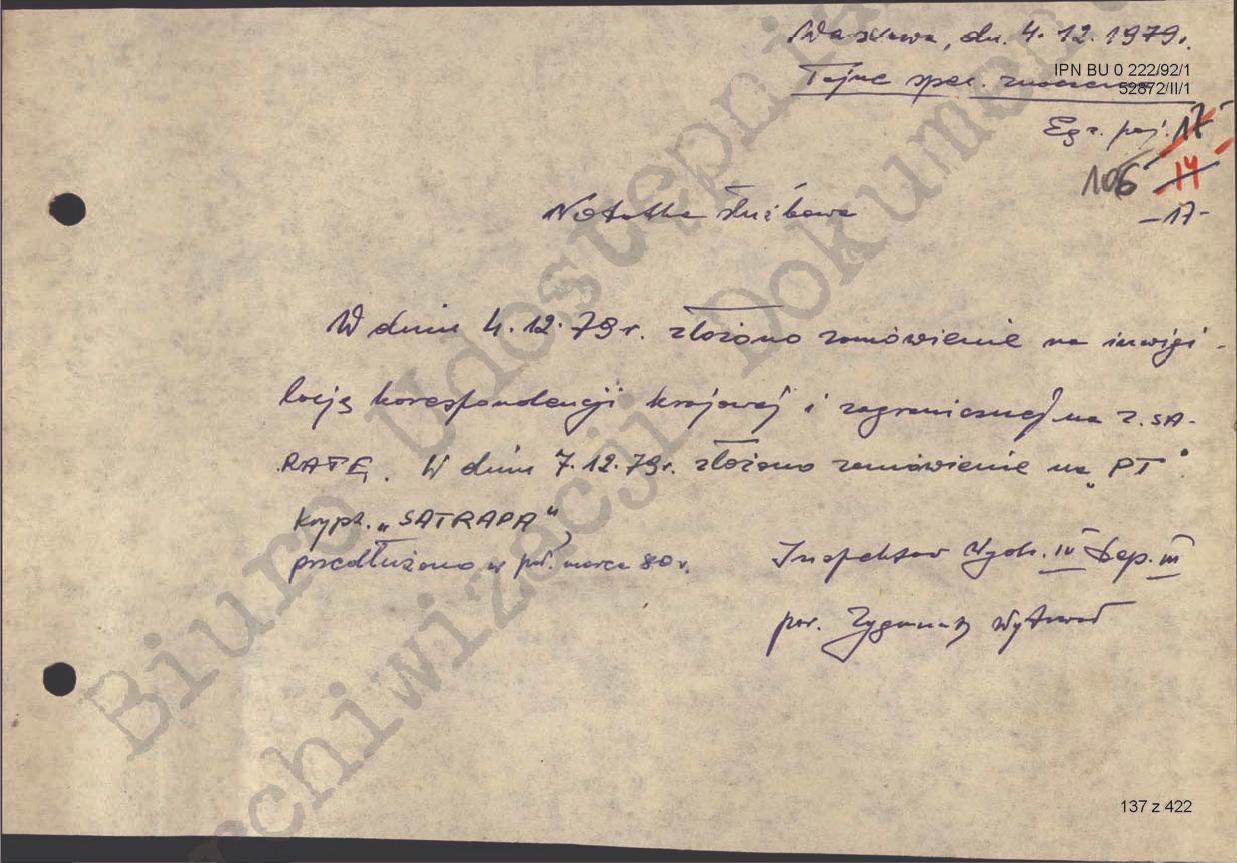 Warszawa, dn. 4.12.1979r.
IPN BU 0 222/92/1
Tajne spec. znaczenia
52872/II/1
Egz. poj. 17
106 14
-17-
Notatka służbowa
W dniu 4.12.79r. złożono zamówienie na inwigi-
lację korespondencji krajowej i zagranicznej na Z. SA-
RATĘ. W dniu 7.12.79r. złożono zamówienie na "PT"
krypt. „SATRAPA"
przedłużono w poł. marca 80r.
Inspektor Wydz. IV Dep. III
por. Zygmunt
Biuro Udostępnia
rchiwizacji Dokumen
137 z 422